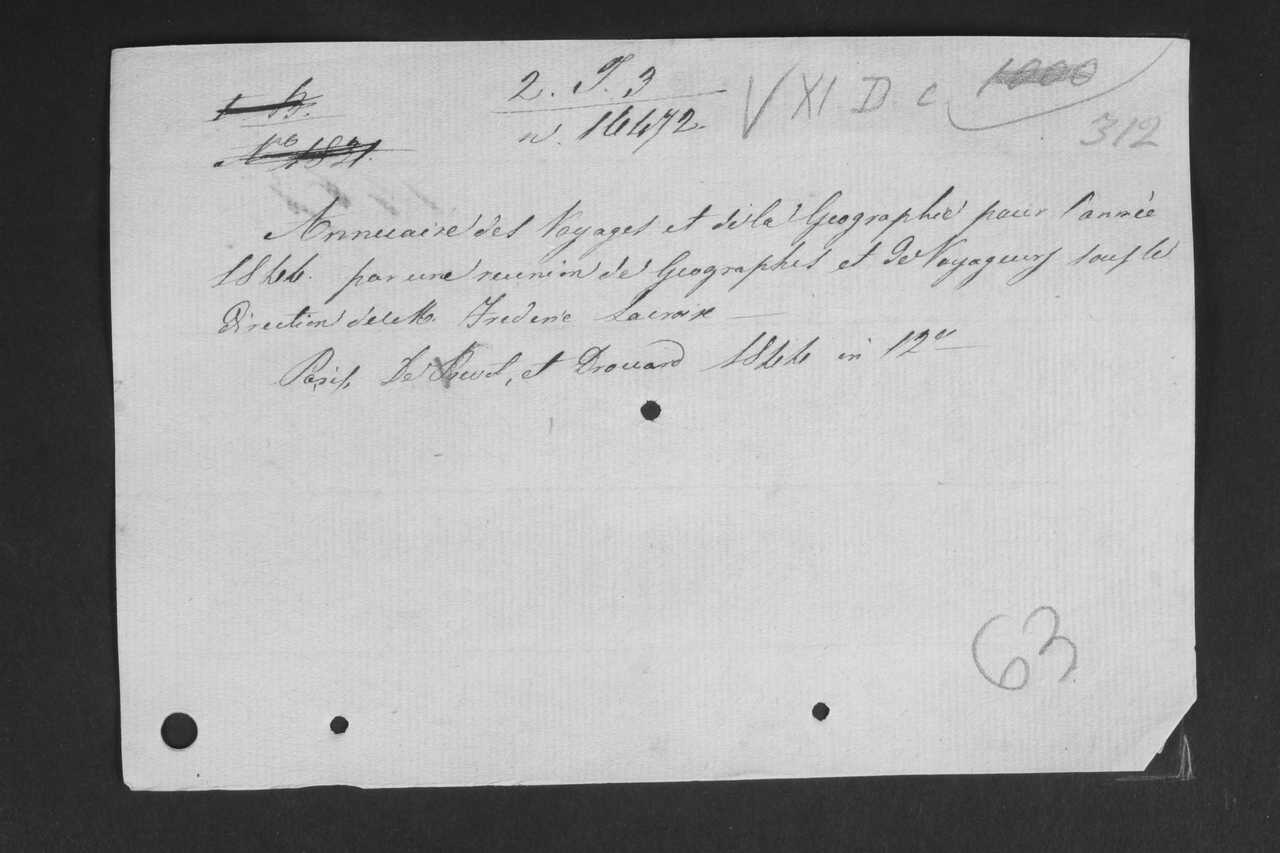 2. T. 3
n. 16472.
V XI D. c 1000
312
Nº 1831.
Annuaire des Voyages et de la Geographie pour l'année
1844. par une reunion de Geographes et de Voyageurs sous la
direction de M. Frederic Lacroix —
Paris, et Drouard 1844 in 12º
63